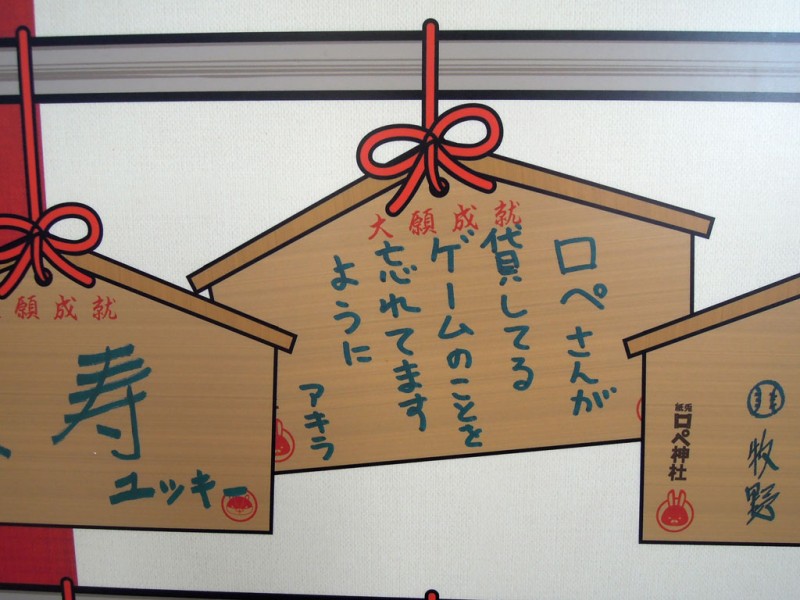 大願成就
ロペさんが
貸してる
ゲームのことを
忘れてます
ように
アキラ
願成就
寿
ユッキー
牧野
紙兎
ロペ神社